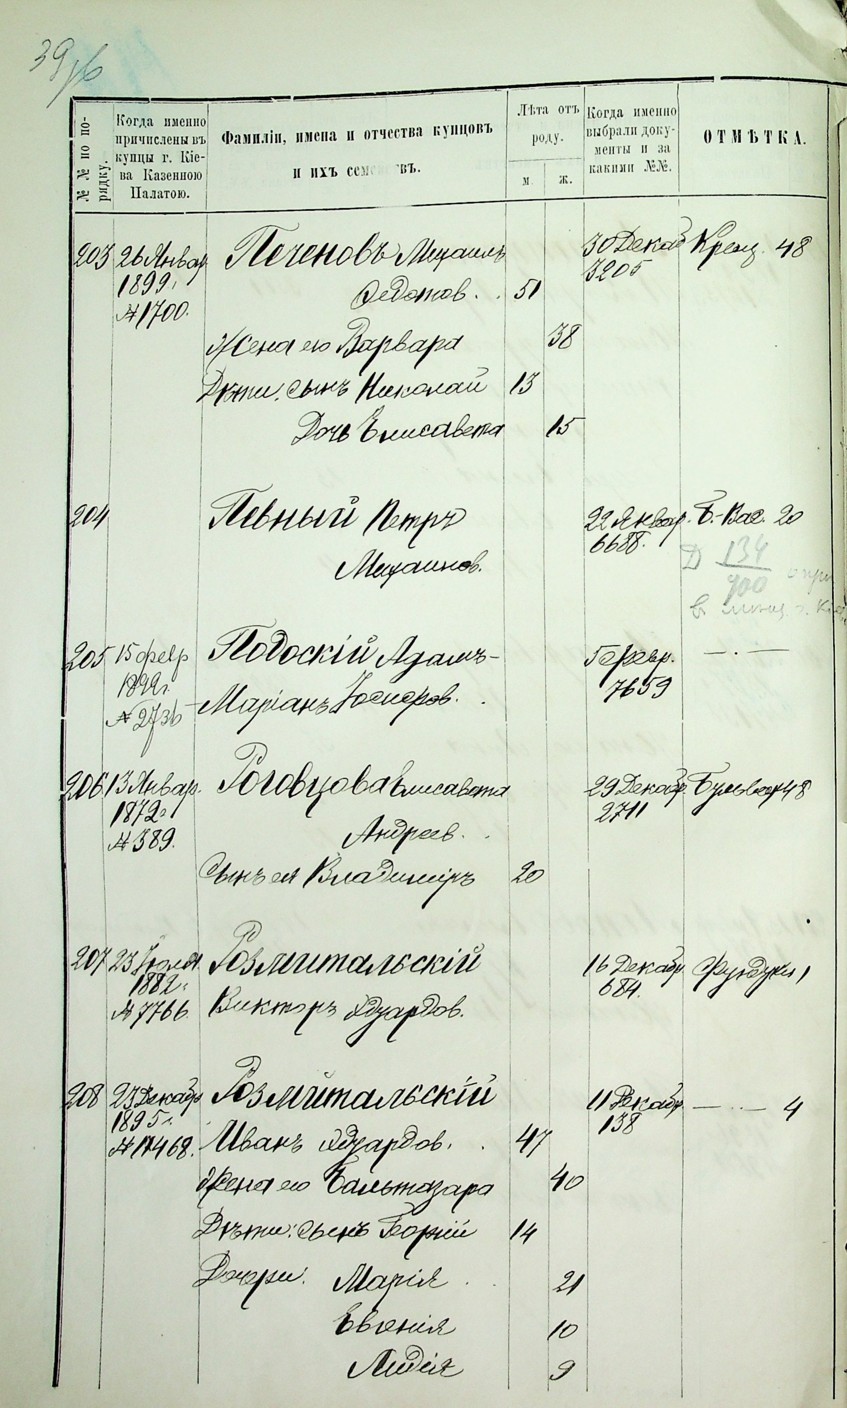 39
№№ по по-
рядку.
Когда именно
причислены въ
купцы г. Кіе-
ва Казенною
Палатою.
Фамиліи, имена и отчества купцовъ
и ихъ семействъ.
Лѣта отъ
роду.
м. ж.
Когда именно
выбрали доку-
менты и за
какими №№.
ОТМѢТКА.
203 26 Январ Печеновъ Михаилъ 30 Декаб Крещ. 48
1899г. Федотов. 51 3205
№1700.
Жена его Варвара 38
Дѣти: сынъ Николай 13
Дочь Елисавета 15
204 Пѣвный Петръ 22 Январ. Б.-Вас. 20
Михаилов. 6688.
134
205 15 февр Подоскій Адамъ- 5 февр. — · —
1899г. Маріанъ Іосифов. 7659
№ 2736
206 13 Январ. Роговцова Елисавета 29 Декабр. Бульвар 48
1872г. Андреев. 2711
№ 389.
Сынъ ея Владиміръ 20
207 23 Іюля Розмитальскій 16 Декабр Фундукл 1
1882г. Викторъ Эдуардов. 684.
№ 7766.
208 23 Декабр Розмитальскій 11 Декабр — · — 4
1895г. Иванъ Эдуардов. 47 138
№ 11468.
Жена его Бальтазара 40
Дѣти: сынъ Георгій 14
Дочери: Марія 21
Евгенія 10
Лидія 9